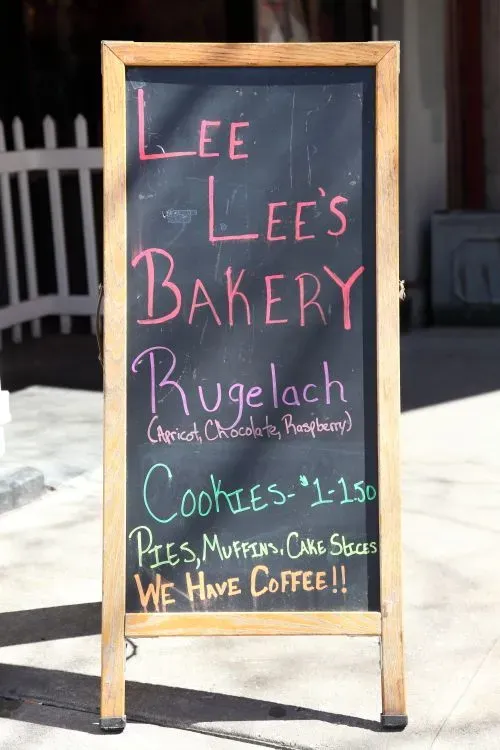 LEE
LEE'S
BAKERY
Rugelach
(Apricot, Chocolate, Raspberry)
COOKIES- $1-1.50
PIES, MUFFINS, CAKE SLICES
WE HAVE COFFEE!!